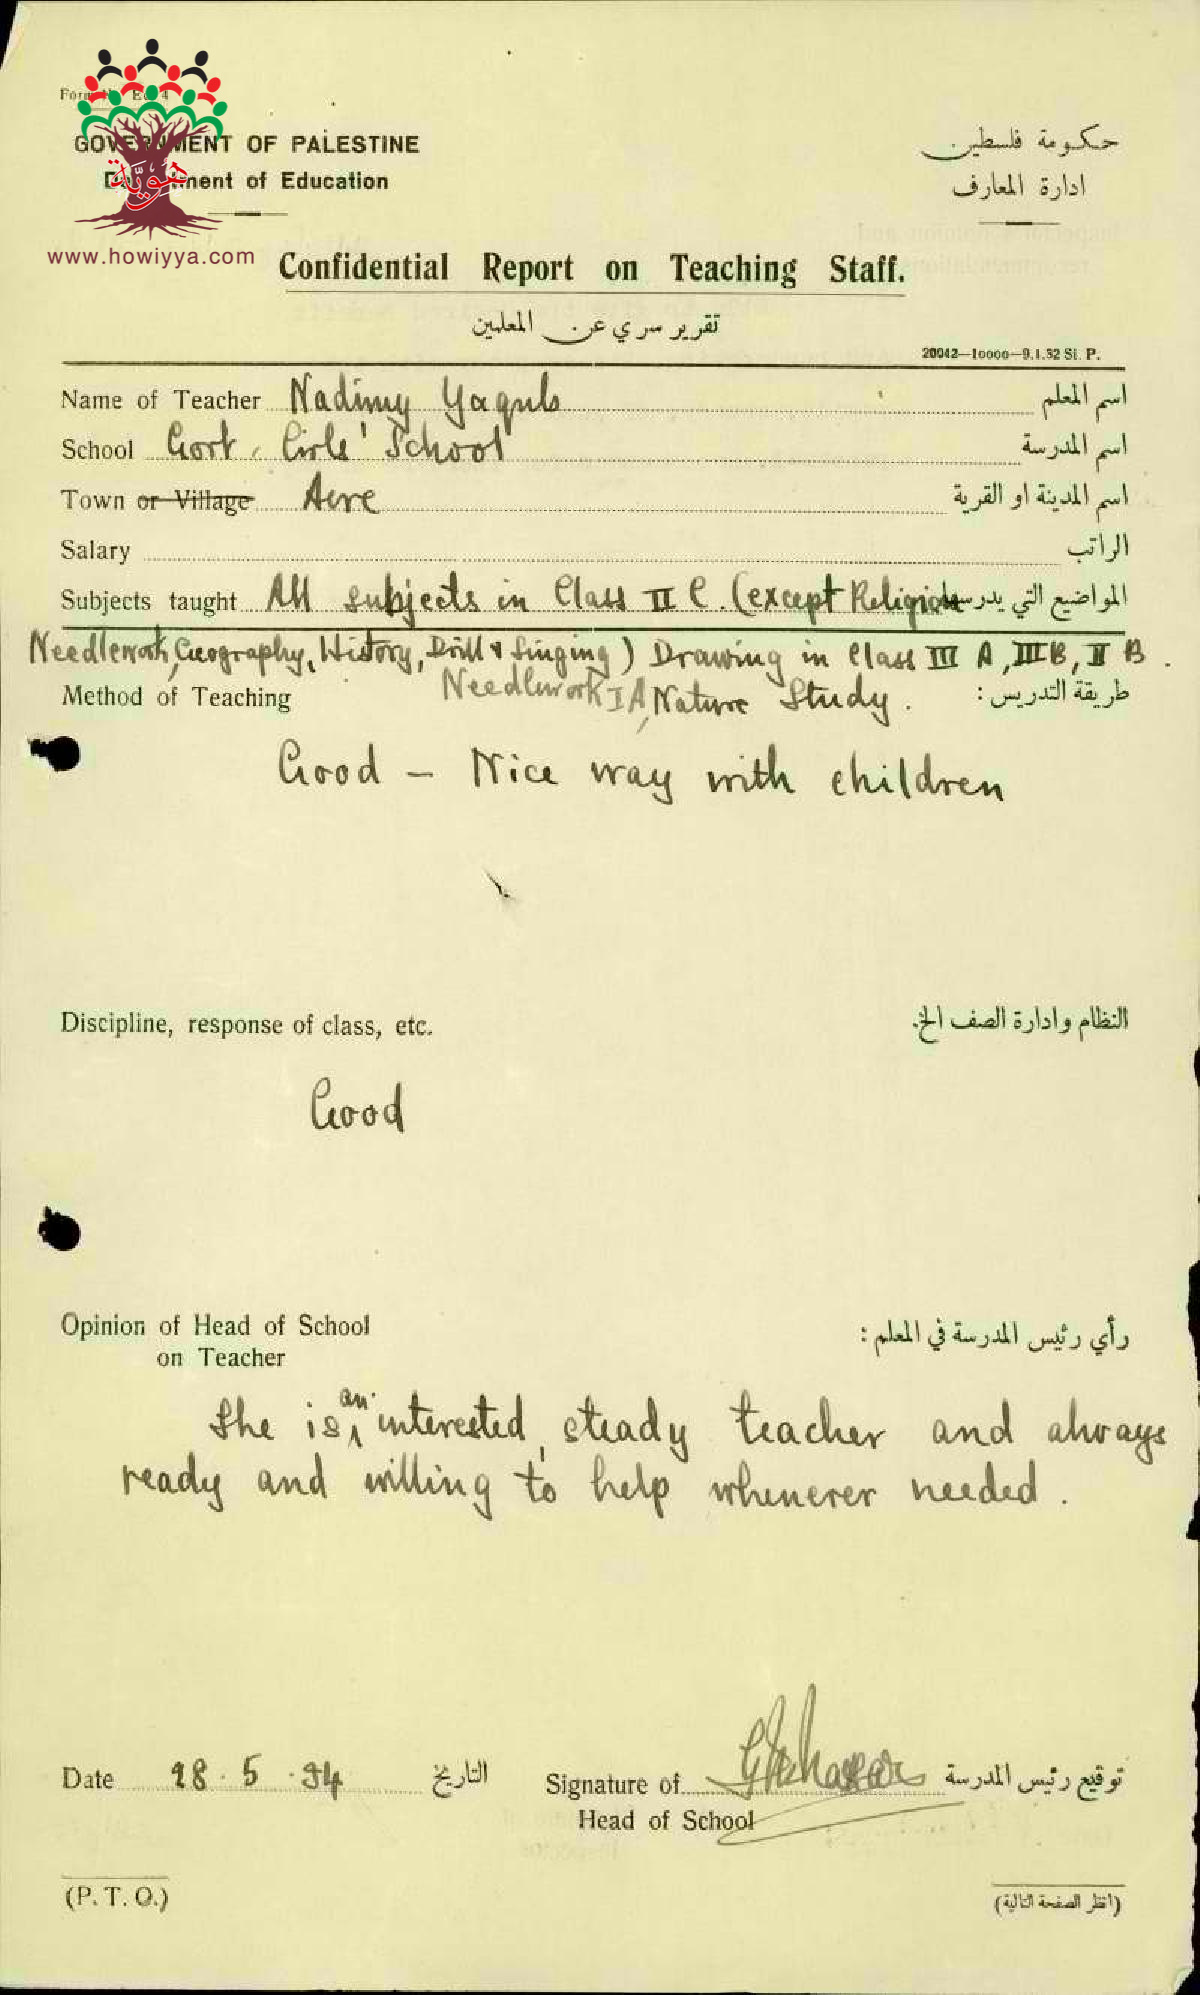 GOVERNMENT OF PALESTINE
Department of Education
حكومة فلسطين
ادارة المعارف
هوية
www.howiyya.com
Confidential Report on Teaching Staff.
تقرير سري عن المعلمين
20042—10000—9.1.32 Sl. P.
Name of Teacher Nadimy Yaqub اسم المعلم
School Govt. Girls' School اسم المدرسة
Town or Village Acre اسم المدينة او القرية
Salary الراتب
Subjects taught All subjects in Class II C. (except Religion المواضيع التي يدرسها
Needlework, Geography, History, Drill & Singing) Drawing in Class III A, III B, II B.
Needlework I A, Nature Study.
Method of Teaching طريقة التدريس :
Good — Nice way with children
Discipline, response of class, etc. النظام وادارة الصف الخ.
Good
Opinion of Head of School on Teacher رأي رئيس المدرسة في المعلم :
She is an interested, steady teacher and always
ready and willing to help whenever needed.
Date 28.5.34 التاريخ
Signature of Head of School توقيع رئيس المدرسة
(P. T. O.) (انظر الصفحة التالية)